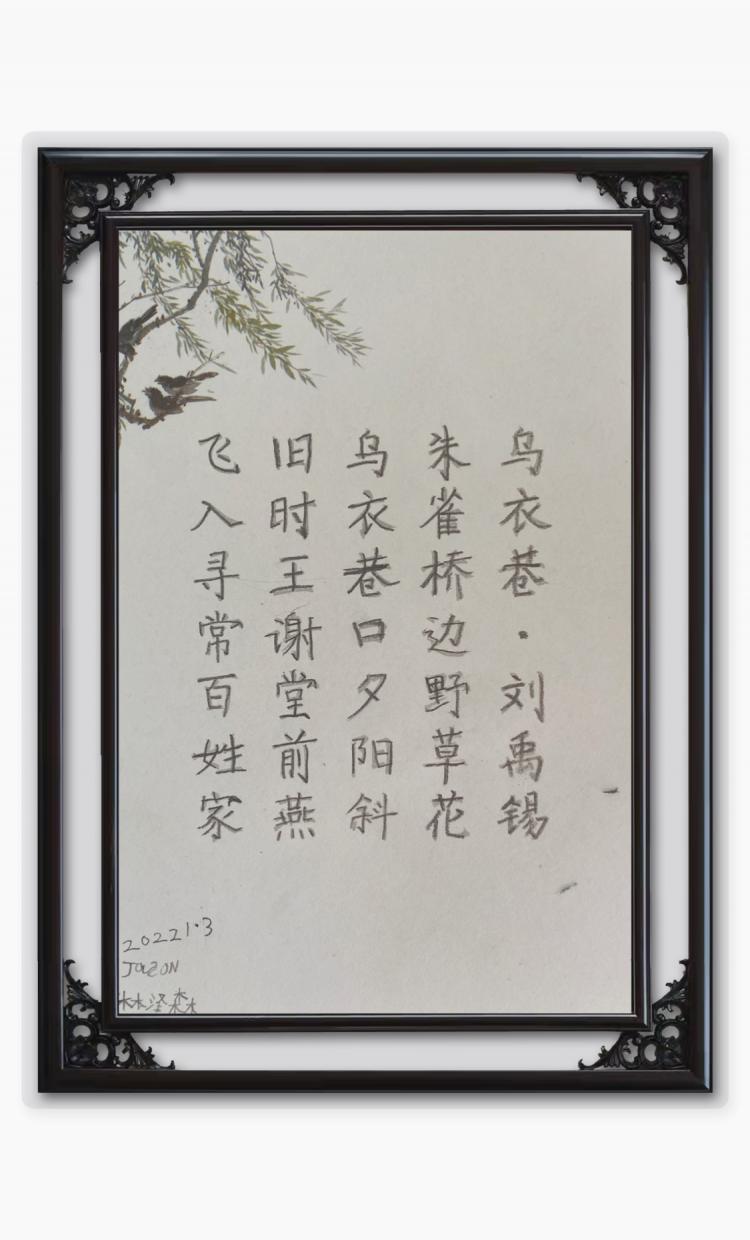 乌衣巷·刘禹锡
朱雀桥边野草花
乌衣巷口夕阳斜
旧时王谢堂前燕
飞入寻常百姓家
20221·3
JOLZON
林泽森